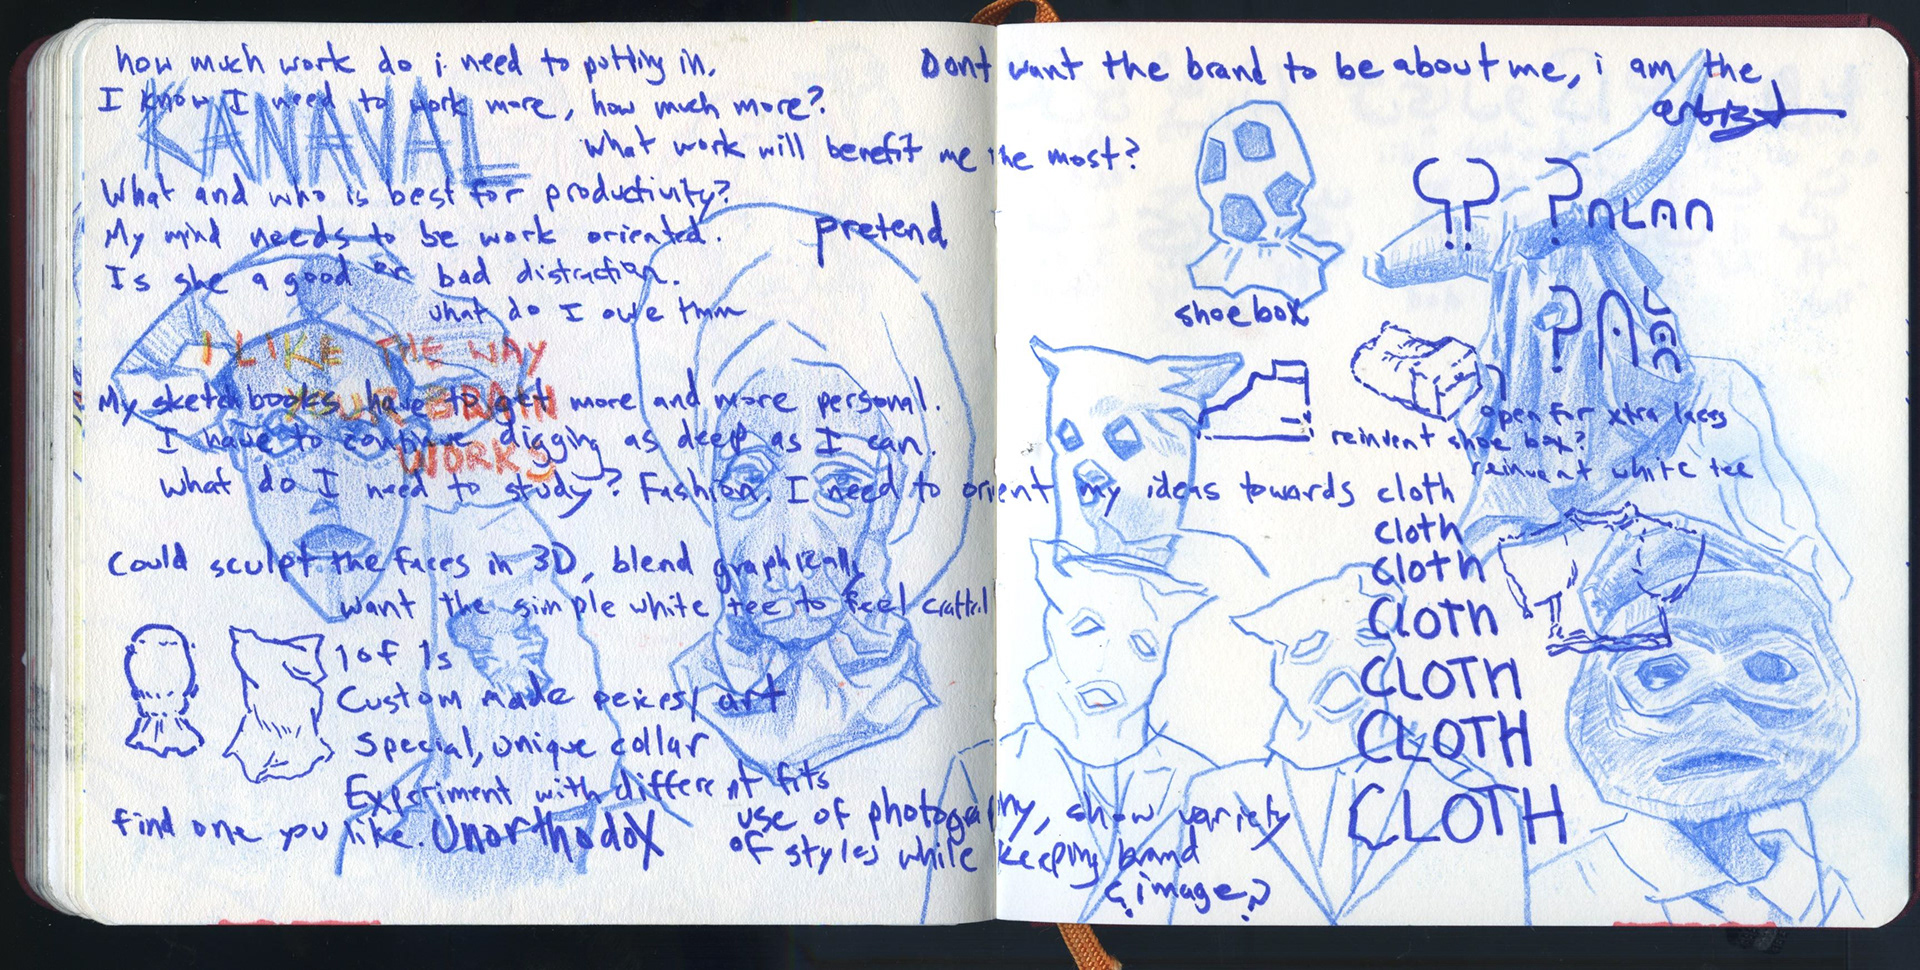 how much work do i need to putting in.
I know I need to work more, how much more?
KANAVAL
what work will benefit me the most?
What and who is best for productivity?
My mind needs to be work oriented.
pretend
Is she a good or bad distraction.
what do I owe them
I LIKE THE WAY
YOUR BRAIN
WORKS
My sketchbooks have to get more and more personal.
I have to continue digging as deep as I can.
what do I need to study? Fashion. I need to orient my ideas towards cloth
cloth
cloth
Cloth
CLOTH
CLOTH
CLOTH
Could sculpt the faces in 3D, blend graphically
want the simple white tee to feel crafted
1 of 1s
Custom made peices/ art
Special, unique collar
Experiment with different fits
find one you like. Unorthodox
use of photography, show variety
of styles while keeping brand
¿image?
Dont want the brand to be about me, i am the
artist
?? ? ALAN
shoebox
? ALAN
open for xtra laces
reinvent shoe box?
reinvent white tee